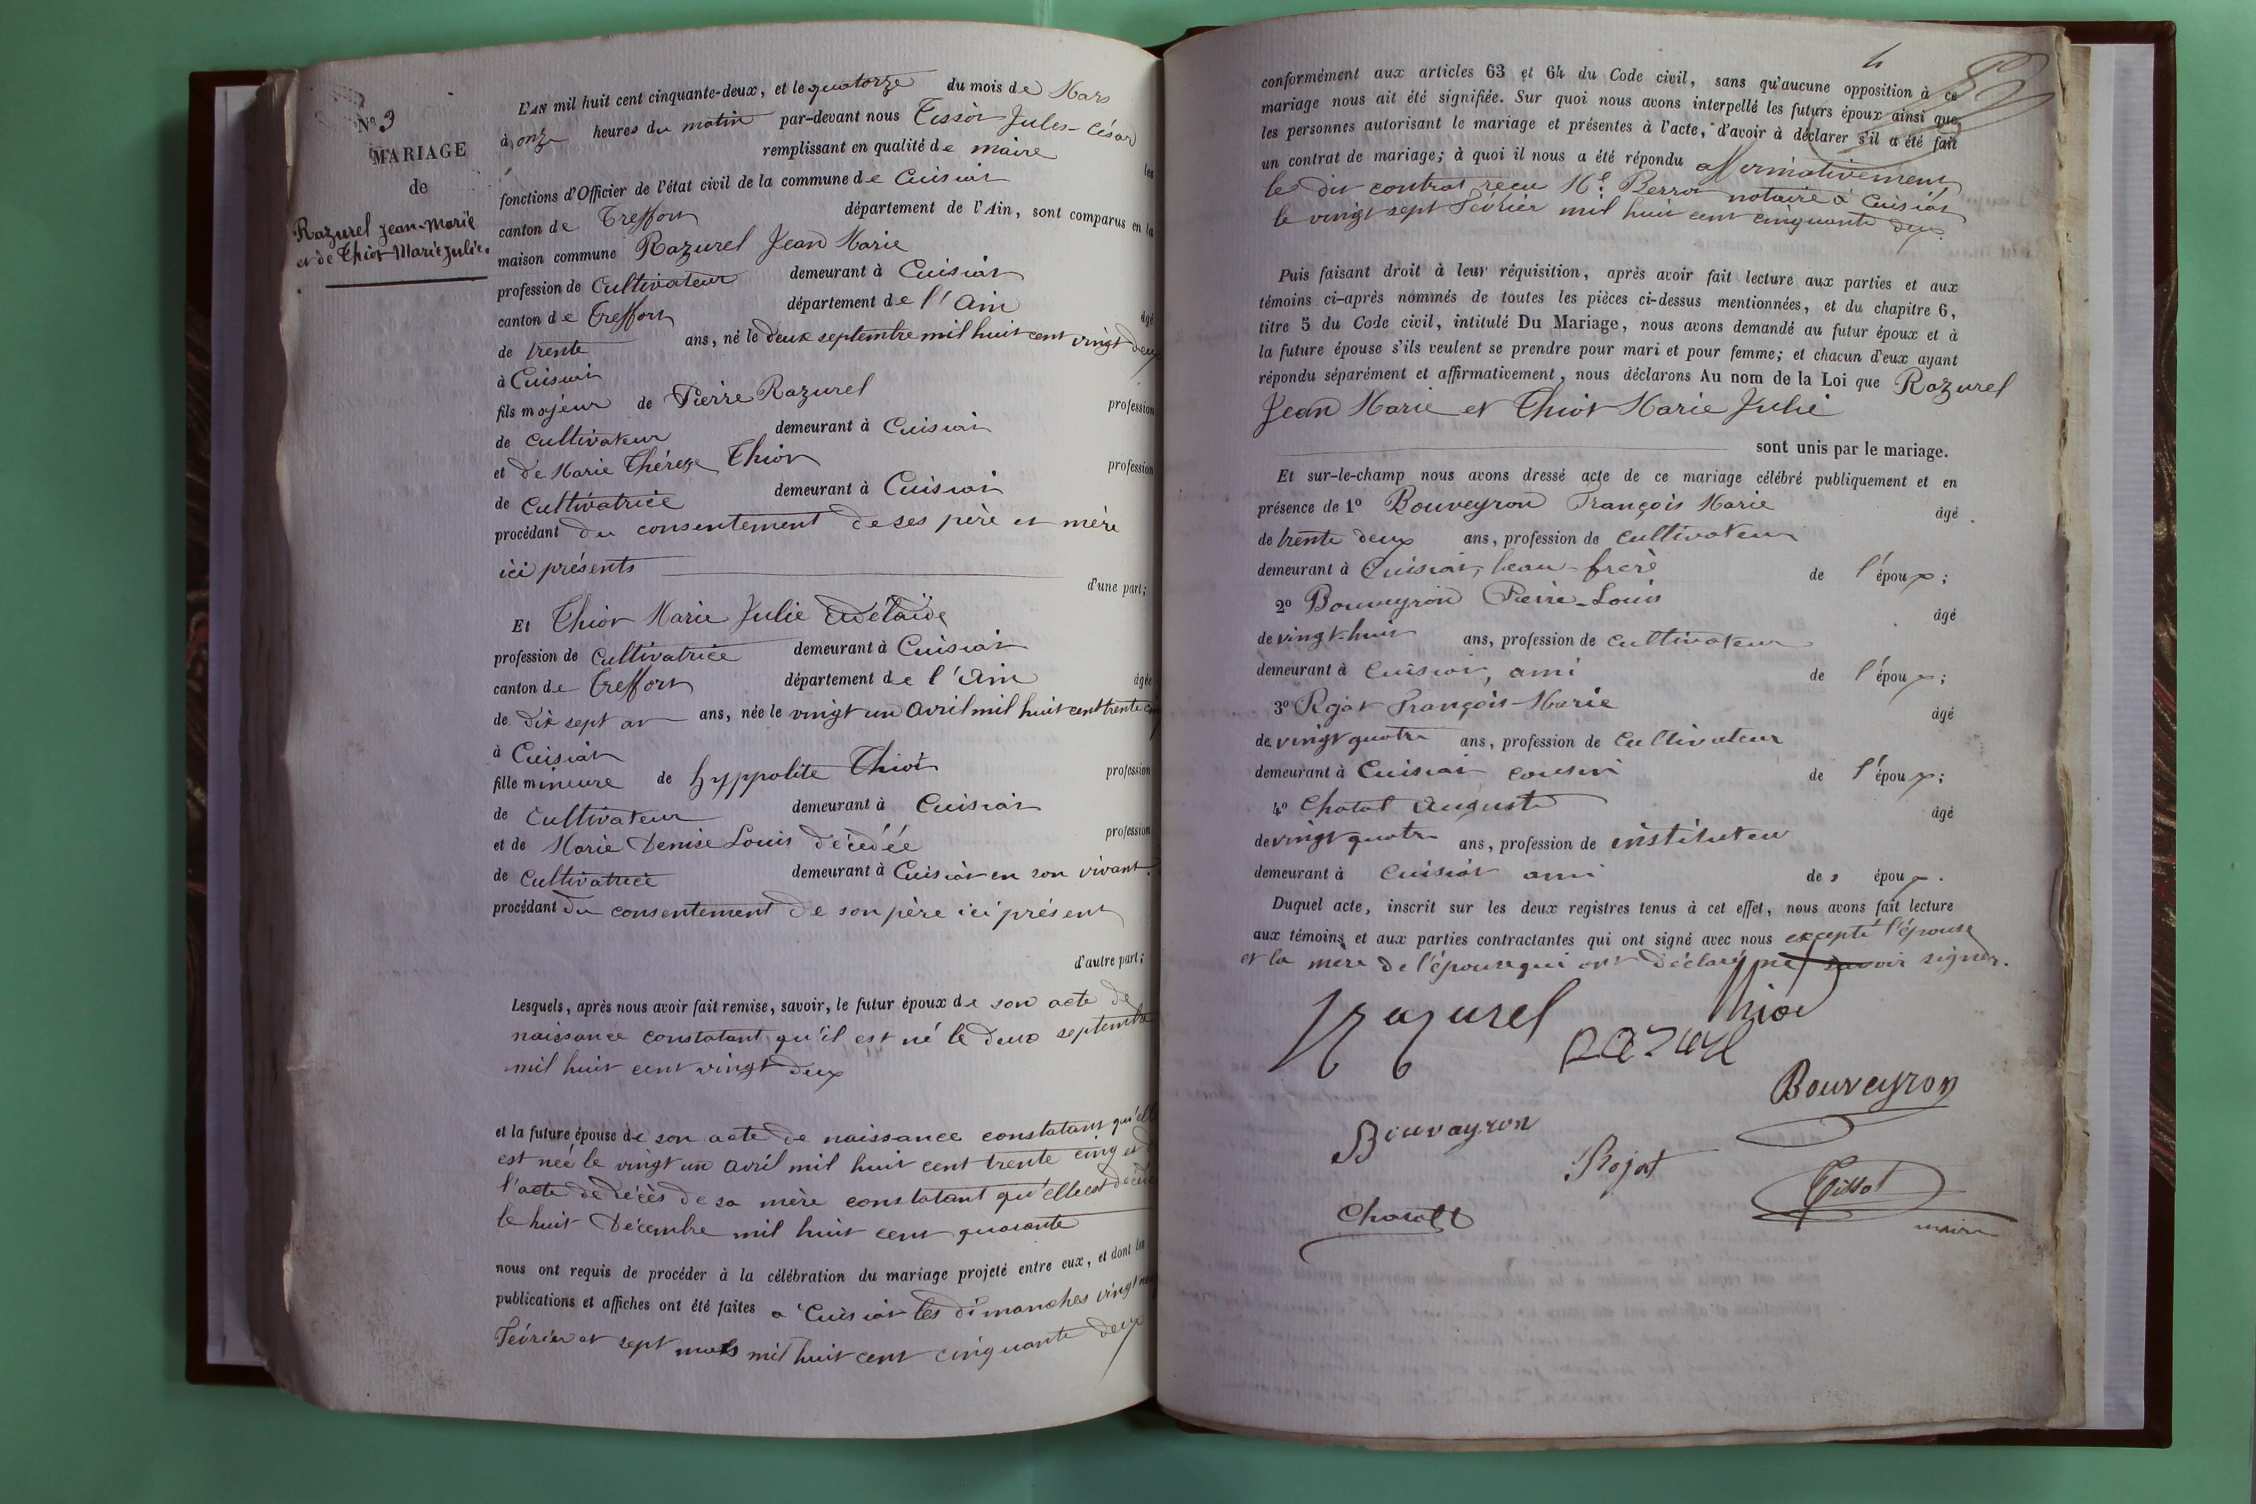 N° 3
MARIAGE
de
Razurel Jean-Marie
et de Thiot Marie Julie.
L'AN mil huit cent cinquante-deux, et le quatorze du mois de Mars
à onze heures du matin par-devant nous Tissot Jules-César
remplissant en qualité de maire les
fonctions d'Officier de l'état civil de la commune de Cuisiat
canton de Treffort département de l'Ain, sont comparus en la
maison commune Razurel Jean Marie
profession de Cultivateur demeurant à Cuisiat
canton de Treffort département de l'Ain âgé
de trente ans, né le deux septembre mil huit cent vingt deux
à Cuisiat
fils majeur de Pierre Razurel profession
de cultivateur demeurant à Cuisiat
et de Marie Thérèze Thiot profession
de Cultivatrice demeurant à Cuisiat
procédant du consentement de ses père et mère
ici présents d'une part;
Et Thiot Marie Julie Adélaïde
profession de Cultivatrice demeurant à Cuisiat
canton de Treffort département de l'Ain âgée
de dix sept an ans, née le vingt un Avril mil huit cent trente cinq
à Cuisiat
fille mineure de hyppolite Thiot profession
de Cultivateur demeurant à Cuisiat
et de Marie Denise Louis décédée profession
de Cultivatrice demeurant à Cuisiat en son vivant.
procédant du consentement de son père ici présent
d'autre part;
Lesquels, après nous avoir fait remise, savoir, le futur époux de son acte de
naissance constatant qu'il est né le deux septembre
mil huit cent vingt deux
et la future épouse de son acte de naissance constatant qu'elle
est née le vingt un avril mil huit cent trente cinq et de
l'acte de décès de sa mère constatant qu'elle est décédée
le huit Décembre mil huit cent quarante
nous ont requis de procéder à la célébration du mariage projeté entre eux, et dont les
publications et affiches ont été faites à Cuisiat les dimanches vingt neuf
Février et sept mars mil huit cent cinquante deux
4
conformément aux articles 63 et 64 du Code civil, sans qu'aucune opposition à ce
mariage nous ait été signifiée. Sur quoi nous avons interpellé les futurs époux ainsi que
les personnes autorisant le mariage et présentes à l'acte, d'avoir à déclarer s'il a été fait
un contrat de mariage; à quoi il nous a été répondu affirmativement
le dit contrat reçu Me. Perrot notaire à Cuisiat
le vingt sept Février mil huit cent cinquante deux.
Puis faisant droit à leur réquisition, après avoir fait lecture aux parties et aux
témoins ci-après nommés de toutes les pièces ci-dessus mentionnées, et du chapitre 6,
titre 5 du Code civil, intitulé Du Mariage, nous avons demandé au futur époux et à
la future épouse s'ils veulent se prendre pour mari et pour femme; et chacun d'eux ayant
répondu séparément et affirmativement, nous déclarons Au nom de la Loi que Razurel
Jean Marie et Thiot Marie Julie
sont unis par le mariage.
Et sur-le-champ nous avons dressé acte de ce mariage célébré publiquement et en
présence de 1° Bouveyron François Marie âgé
de trente deux ans, profession de cultivateur
demeurant à Cuisiat, beau-frère de l'époux;
2° Bouveyron Pierre-Louis âgé
de vingt-huit ans, profession de cultivateur
demeurant à Cuisiat, ami de l'époux;
3° Rojat François-Marie âgé
de vingt quatre ans, profession de Cultivateur
demeurant à Cuisiat cousin de l'époux;
4° Chatot Auguste âgé
de vingt quatre ans, profession de instituteur
demeurant à Cuisiat ami des époux.
Duquel acte, inscrit sur les deux registres tenus à cet effet, nous avons fait lecture
aux témoins et aux parties contractantes qui ont signé avec nous excepté l'épouse
et la mère de l'époux qui ont déclaré ne savoir signer.
Razurel Thiot
RAZUREL
Bouveyron
Bouvayron
Rojat
Tissot
maire
Chatott